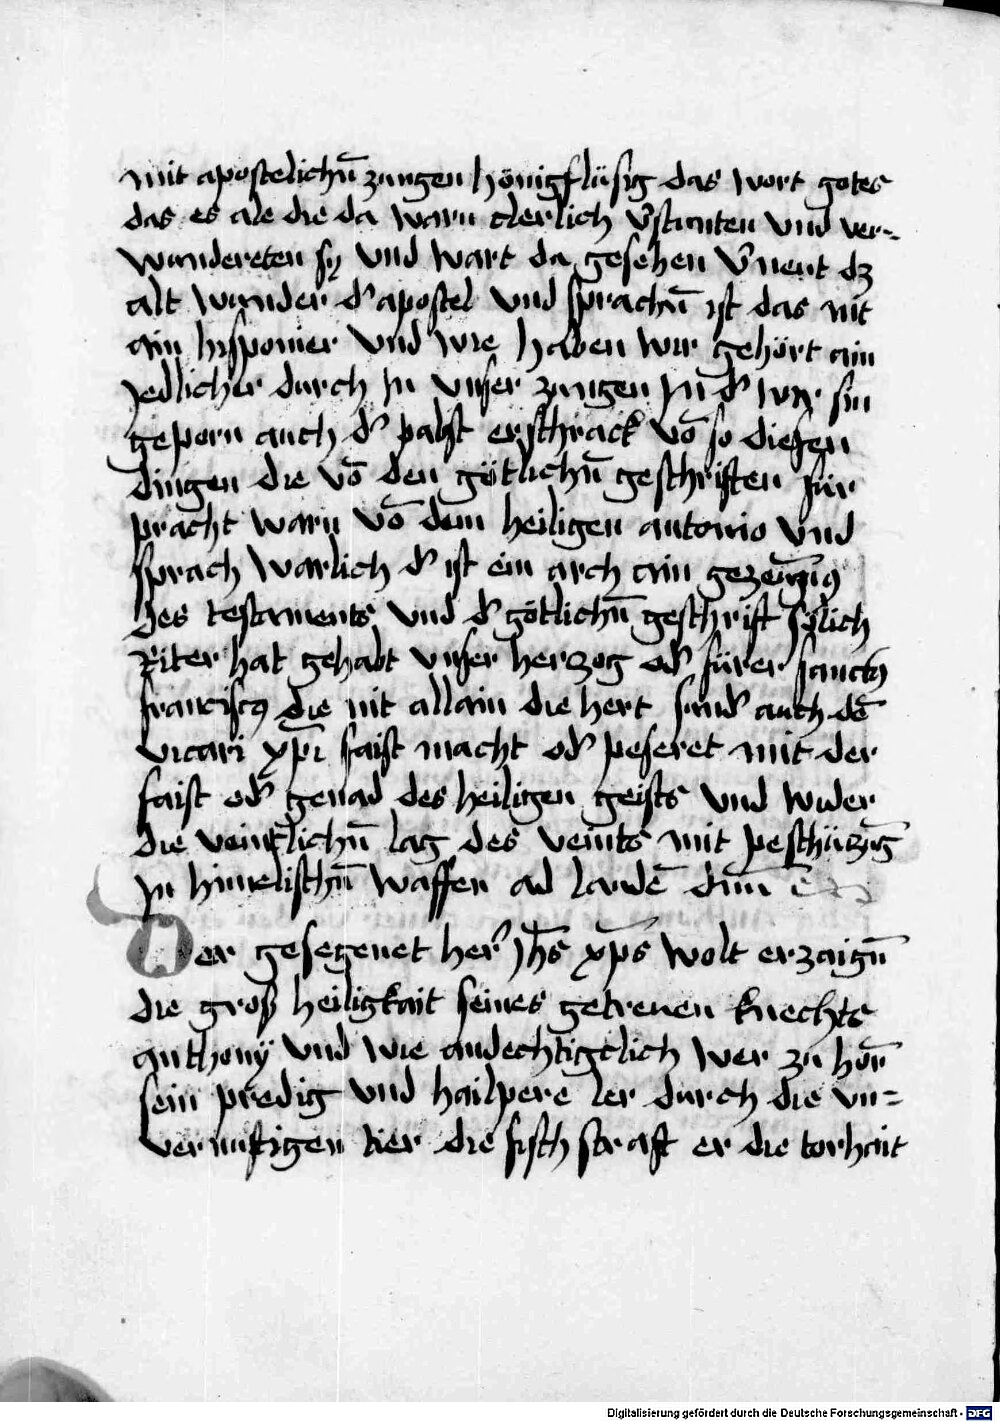 mit apostelichn̄ zungen hönigflüsig das wort gotes
das es ale die da warn clerlich v̄stunten vnd ver-
wundereten sy vnd wart da gesehen v̄neut dz
alt wunder d' apostel vnd sprachn̄ ist das nit
ain hisponier vnd wie haben wir gehört ain
Jedlicher durch In vnser zungen In d' wir sin
geporn auch d' pabst erschrack vō so diefen
dingen die vō den götlichn̄ geschriften für
pracht warn vō dem heiligen antonio vnd
sprach warlich d' ist ein arch ain
des testaments vnd d' götlichn̄ geschrift sölich
Riter hat gehabt vnser herzog od' fürer sanctꝯ
franciscꝯ die nit allain die hert sund' auch dē
vicari xp̄i faist macht od' peseret mit der
faist od' genad des heiligen geists vnd wider
die veintlichn̄ lag des veints mit peschüzūg
In himelischn̄ waffen ad laudē dn̄i
Der gesegenet her' Jh̄s xp̄s wolt erzaign̄
die groß heiligkait seines getreuen knechts
anthonÿ vnd wie andechtigclich wer zu hörn̄
sein predig vnd hailpere ler durch die vn-
vernuftigen tier die fisch straft er die torhait
Digitalisierung gefördert durch die Deutsche Forschungsgemeinschaft - DFG